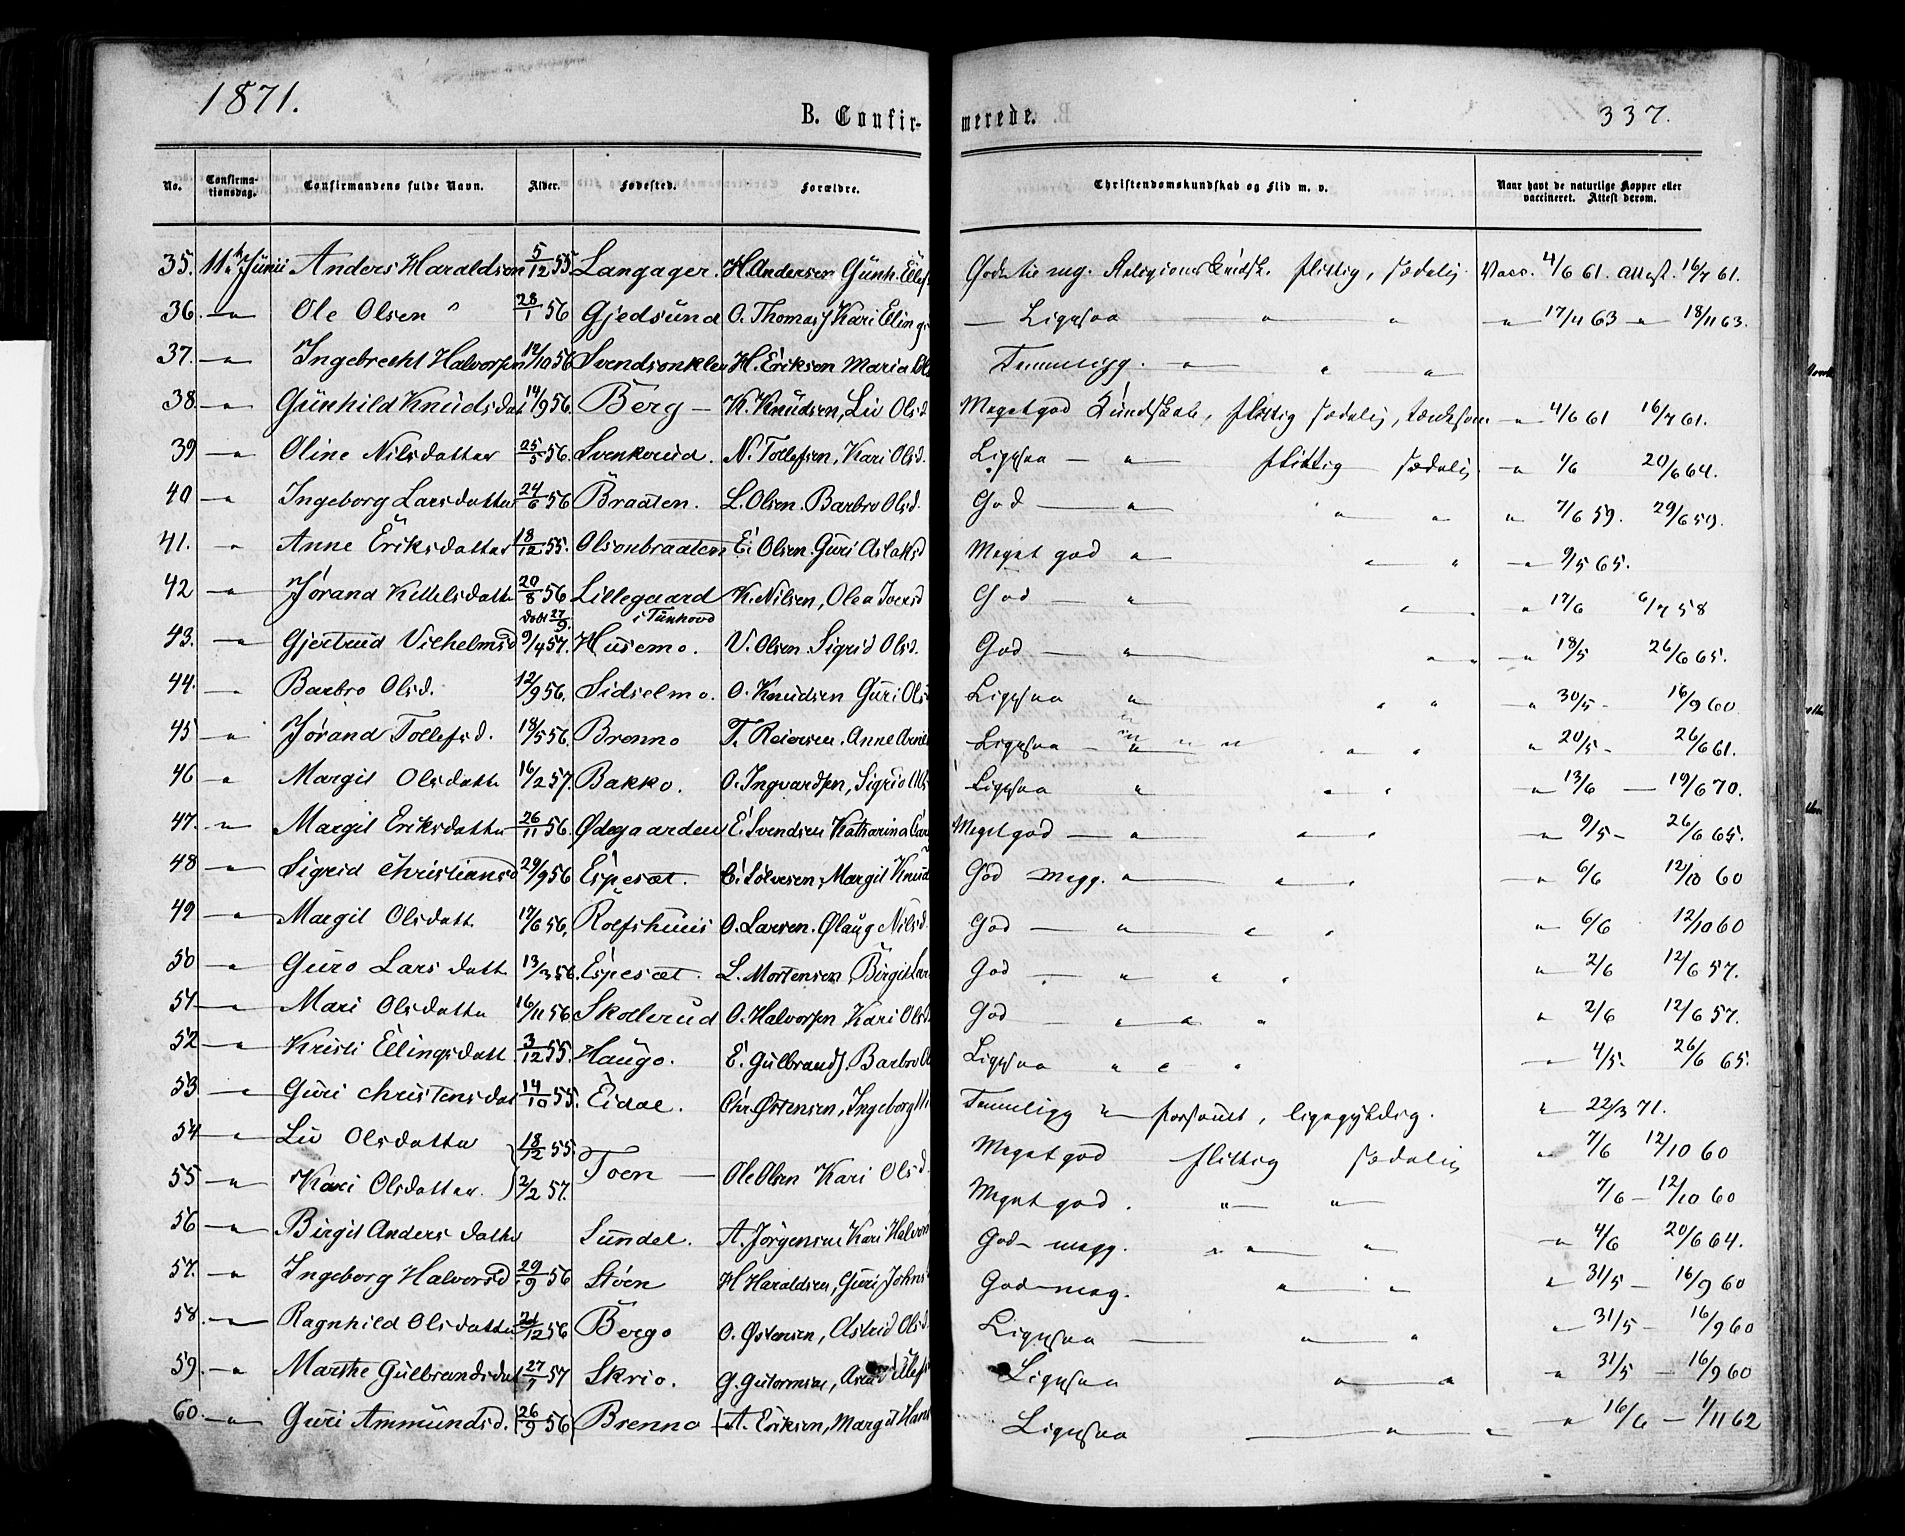 1871.
B. Confir-
merede.
337.
No. Confirmationsdag. Confirmandens fulde Navn. Alder. Fødested. Forældre. Christendomskundskab og Flid m. v. Naar havt de naturlige Kopper eller vaccineret. Attest derom.
35. 11te Junii Anders Haraldsen 5/12 55. Langager. H. Andersen Gunh. Ellefs flittig, sædelig Vacc. 4/6 61. Attest. 16/7 61.
36. — " — Ole Olsen " 28/1 56 Gjedsund O. Thomas Kari Elling — Ligesaa — " " " 17/11 63 " 18/11 63.
37. — " — Ingebrecht Halvorsen 12/10 56 H. Eriksen Maria Temmeligg. — " — " "
38. — " — Gunhild Knudsdat 14/9 56. Berg — K. Knudsen, Liv Olsd Meget god Kundskab, flittig sædelig, " 4/6 61 16/7 61.
39 — " — Oline Nilsdatter 25/5 56. Svenkerud. N. Tollefsen, Kari Olsd. Ligesaa — " — flittig sædelig — " 1/6 20/6 64.
40 — " Ingeborg Larsdatter 24/6 56 Braaten. L. Olsen. Barbro Olsd. God — " — " " " 7/6 59. 29/6 59.
41. — " Anne Eriksdatter 18/12 55. Olsonbraaten E. Olsen. Guri Aslaksd Meget god " — " " — " 9/5 65.
42 — " — Jørand Kittelsdatt 20/8 56 døbt 27/9. Lillegaard i Tunhovd K. Nilsen, Olea Iversd God — " — " " 17/6 6/7 58
43. — " — Gjertrud Vilhelmsd 9/4 57. Husemo. V. Olsen Sigrid Olsd. God — " — " " " 18/5 26/6 65.
44. — " Barbro Olsd. 12/9 56. Sidselmo. O. Knudsen Guri Ols Ligesaa " " " — " 30/5 - 16/9 60
45 — " — Jørand Tollefsd. 18/5 56. Brenno T. Reiersen. Anne Ligesaa — " " " " " " 20/5 - 26/6 61.
46 — " Margit Olsdatt 16/2 57. Bakko. O. Ingvardsen, Sigrid Ols Ligesaa " " " — " 13/6 — 19/6 70.
47. — " Margit Eriksdatter 26/11 56. Ødegaarden E. Svendsen Katharina Meget god — " — " " — " 9/5 - 26/6 65.
48 — " — Sigrid Christiansd 29/9 56 Espeset. C. Solvesen, Margit Knud God megg. " — " " — " 6/6 12/10 60
49 — " — Margit Olsdatt 17/6 56. Roefshuus O. Larsen. Ølaug Nilsd. God — " — " " " 6/6 12/10 60
50 — " — Guro Larsdatt 13/3 56. Espeset. L. Mortensen Birgit Lar God — " " " " 2/6 12/6 57.
51 — " — Mari Olsdatter 16/11 56 Skollerud O. Halvorsen Kari Olsd. God — " " " " 2/6 12/6 57.
52 — " — Kristi Ellingsdatt 3/12 55. Haugo. E. Gulbrands. Barbro Ligesaa " " " — " 4/5 - 26/6 65.
53. — " — Guri Christensdat 14/10 55. Eidal. Chr. Østensen, Ingeborg Temmeligg " — forsømt, ligegyldig. " 22/3 71.
54 — " — Liv Olsdatter 18/12 55 Toen — Ole Olsen Kari Olsd. Meget god flittig sædelig " 7/6 12/10 60
55 — " — Kari Olsdatter. 2/2 57. Meget god. " " 7/6 — 12/10 60
56 — " — Birgit Andersdatter Sundet. A. Jørgensen Kari Halvors God megg. " " " — " 4/6 20/6 64.
57. — " Ingeborg Halvorsd 29/9 56 Støen H Haraldsen, Guri Johns God meg. " " " 31/5 — 16/9 60
58. — " — Ragnhild Olsdatter 24/12 56 Bergo O. Østensen, Astrid Olsd. Ligesaa — " " " 31/5 — 16/9 60
59. — " Marthe Gulbrandsdat 27/1 57 Skrio. G. Gutormsen, Ellefs Ligesaa " " " 31/5 — 16/9 60
60. — " — Guri Ammundsd. 26/9 56 Brenno A. Eriksen, Margit Hans Ligesaa — " " — " 16/6 — 1/11 62